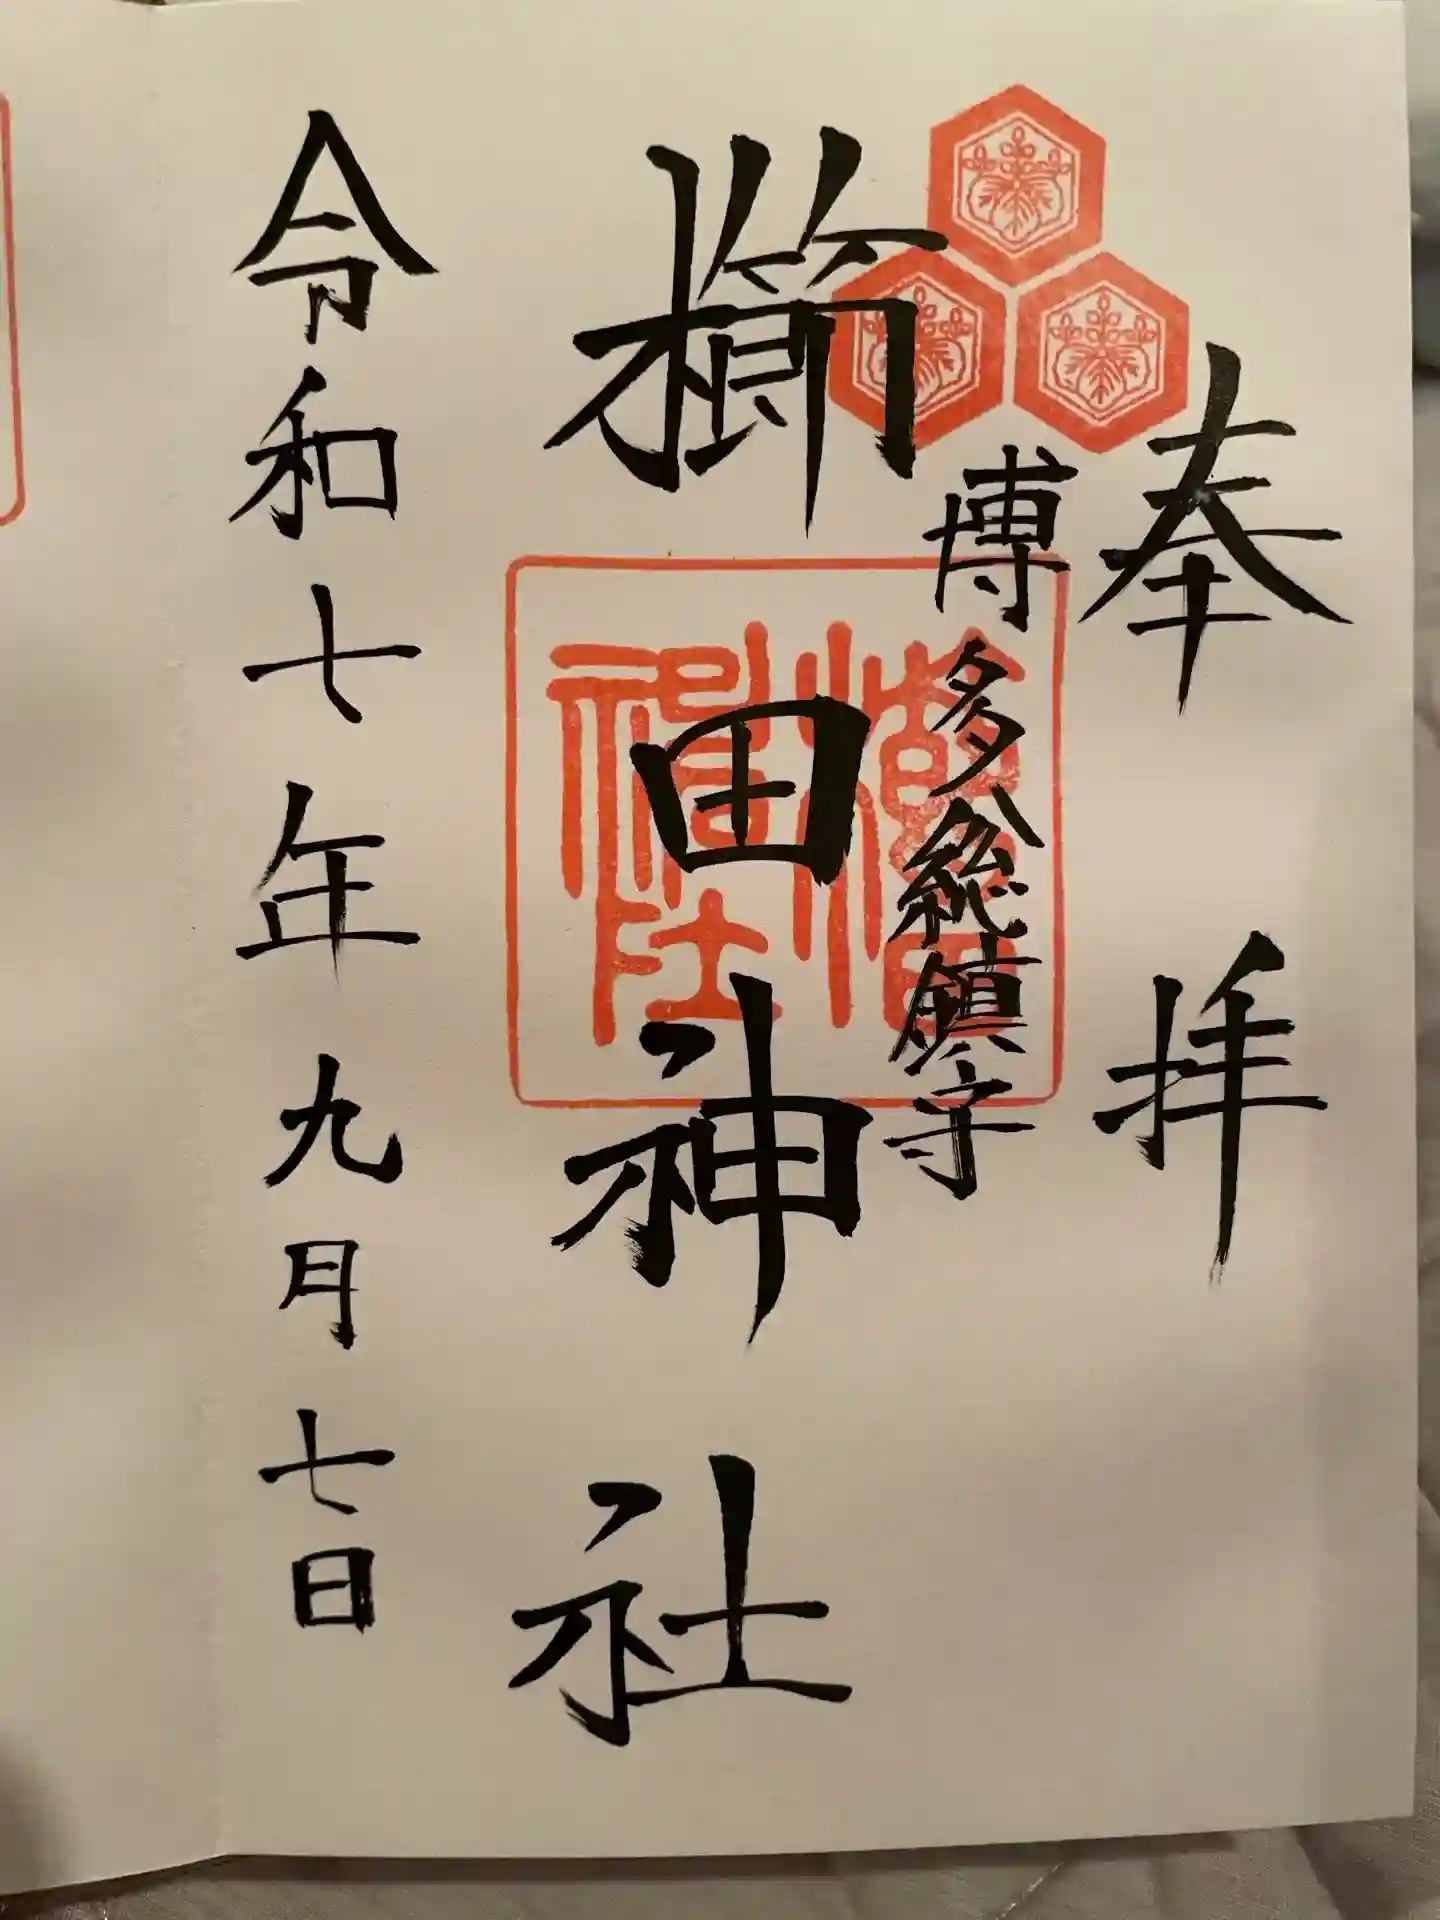 奉拝
博多総鎮守
櫛田神社
櫛田
神社
令和七年九月七日